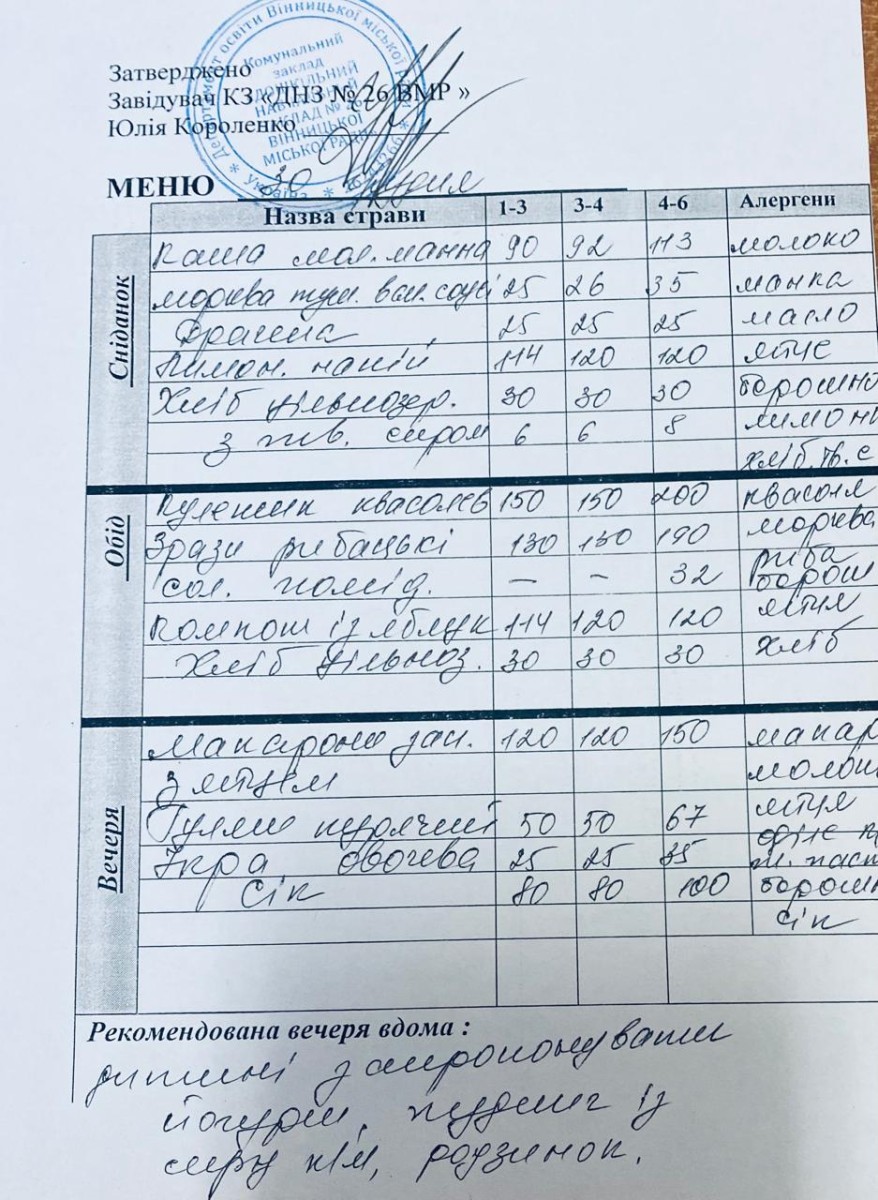 Департамент освіти Вінницької міської ради * Україна *
Комунальний
заклад
ДОШКІЛЬНИЙ
НАВЧАЛЬНИЙ
ЗАКЛАД № 26
ВІННИЦЬКОЇ
МІСЬКОЇ РАДИ
Затверджено
Завідувач КЗ «ДНЗ № 26 ВМР »
Юлія Короленко
МЕНЮ 30
Назва страви 1-3 3-4 4-6 Алергени
Сніданок
Каша мол. манна 90 92 113 молоко
морква туш. в сол. соусі 25 26 35 манка
Драчена 25 25 25 масло
Лимон. напій 114 120 120 яйце
Хліб цільнозер. 30 30 30 борошно
з тв. сиром 6 6 8 лимони
хліб. тв. с
Обід
Кулешик квасолев 150 150 200 квасоля
Зрази рибацькі 130 130 190 морква
риба
сол. помід. — — 32 борош
Компот із яблук 114 120 120 яйця
Хліб цільноз. 30 30 30 хліб
Вечеря
Макарони зап. 120 120 150 макар
з яйцем молоко
Гуляш курячий 50 50 67 яйця
Ікра овочева 25 25 35 т. паст
Сік 80 80 100 борошн
сік
Рекомендована вечеря вдома :
дитині запропонувати
йогурт, пудинг із
сиру к/м, родзинок.